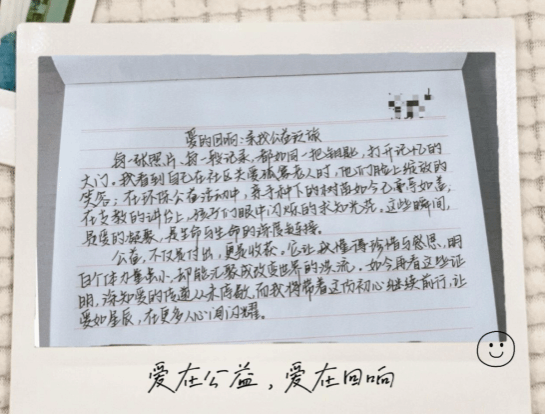 爱的回响:亲我公益之旅
每一张照片、每一段记录,都如同一把钥匙,打开记忆的
大门。我看到自己在社区关爱孤寡老人时,他们脸上绽放的
笑容;在环保公益活动中,亲手种下的树苗如今已亭亭如盖;
在支教的讲台上,孩子们眼中闪烁的求知光芒。这些瞬间,
是爱的凝聚,是生命与生命的深度链接。
公益,不仅是付出,更是收获。它让我懂得珍惜与感恩,明
白个体力量虽小,却能汇聚成改变世界的暖流。如今再看这些证
明,深知爱的传递从未停歇,而我将带着这份初心继续前行,让
爱如星辰,在更多人心间闪耀。
爱在公益,爱在回响